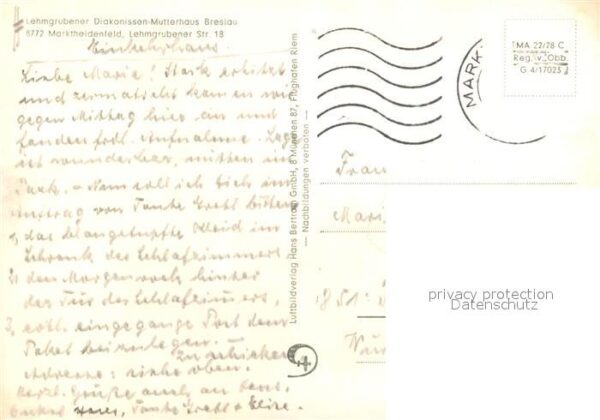 Lehmgrubener Diakonissen-Mutterhaus Breslau
8772 Marktheidenfeld, Lehmgrubener Str. 18
Einkehrhaus.
Liebe Marie! Stark erhitzt
und zermatscht kamen wir
gegen Mittag hier an und
fanden frdl. Aufnahme. Lage
ist wunderbar, mitten im
Park. - Nun soll ich Dich im
Auftrag von Tante Gretl bitten
1, das blaugetupfte Kleid im
Schrank des Schlafzimmers.
2, den Morgenrock hinter
der Tür des Schlafzimmers,
3, evtl. eingegange Post dem
Paket beizulegen.
Zu schicken
Adresse: siehe oben.
Herzl. Grüße auch an
Onkel Hans, Tante Gretl + Elise.
Luftbildverlag Hans Bertram GmbH, 8 München 87, Flughafen Riem
— Nachbildungen verboten —
MARK
MA 22/78 C
Reg. v. Obb.
G 4/17025
Frau
Mari
851
privacy protection
Datenschutz